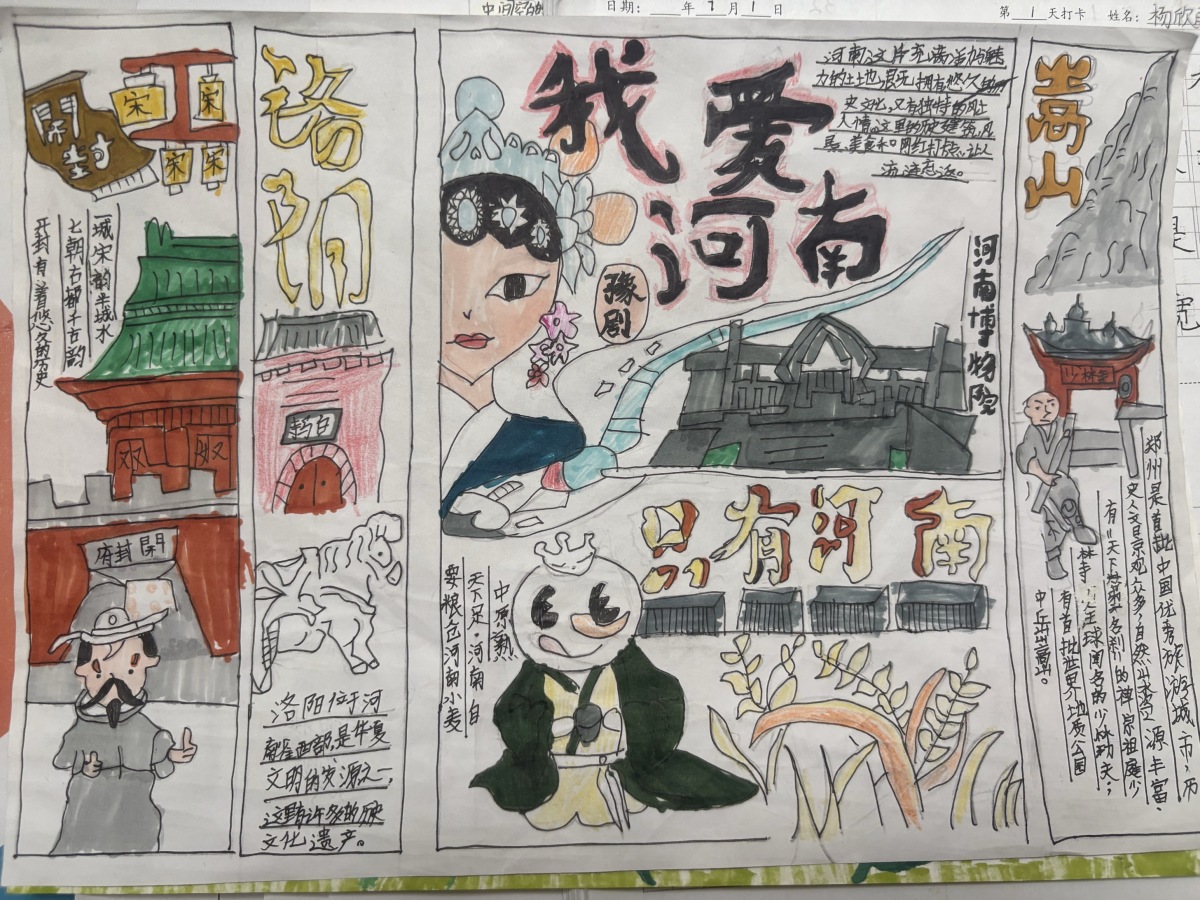 中间空的
日期：____年 7 月 1 日
第 1 天打卡 姓名：杨欣
開封
宋
宋
宋
宋
一城宋韵半城水
七朝古都千古韵
开封有着悠久的历史
開封府
洛阳
洛阳位于河
南省西部,是华夏
文明的发源之一,
这里有许多的历史
文化遗产。
我爱
河南
河南这片充满活力与魅
力的土地,很
史文化,又有独特的风土
人情。这里的历史建筑,风
景、美食和网红打卡点,让人
流连忘返。
豫剧
河南博物院
只有河南
中原熟
天下足·河南自
要粮色河南小麦
嵩山
少林
郑州是首批中国优秀旅游城市,历
史人文景观众多,自然山水资源丰富
有"天下第一名刹"的禅宗祖庭少
林寺
全球闻名的少林功夫;
有首批世界地质公园
中岳嵩山。